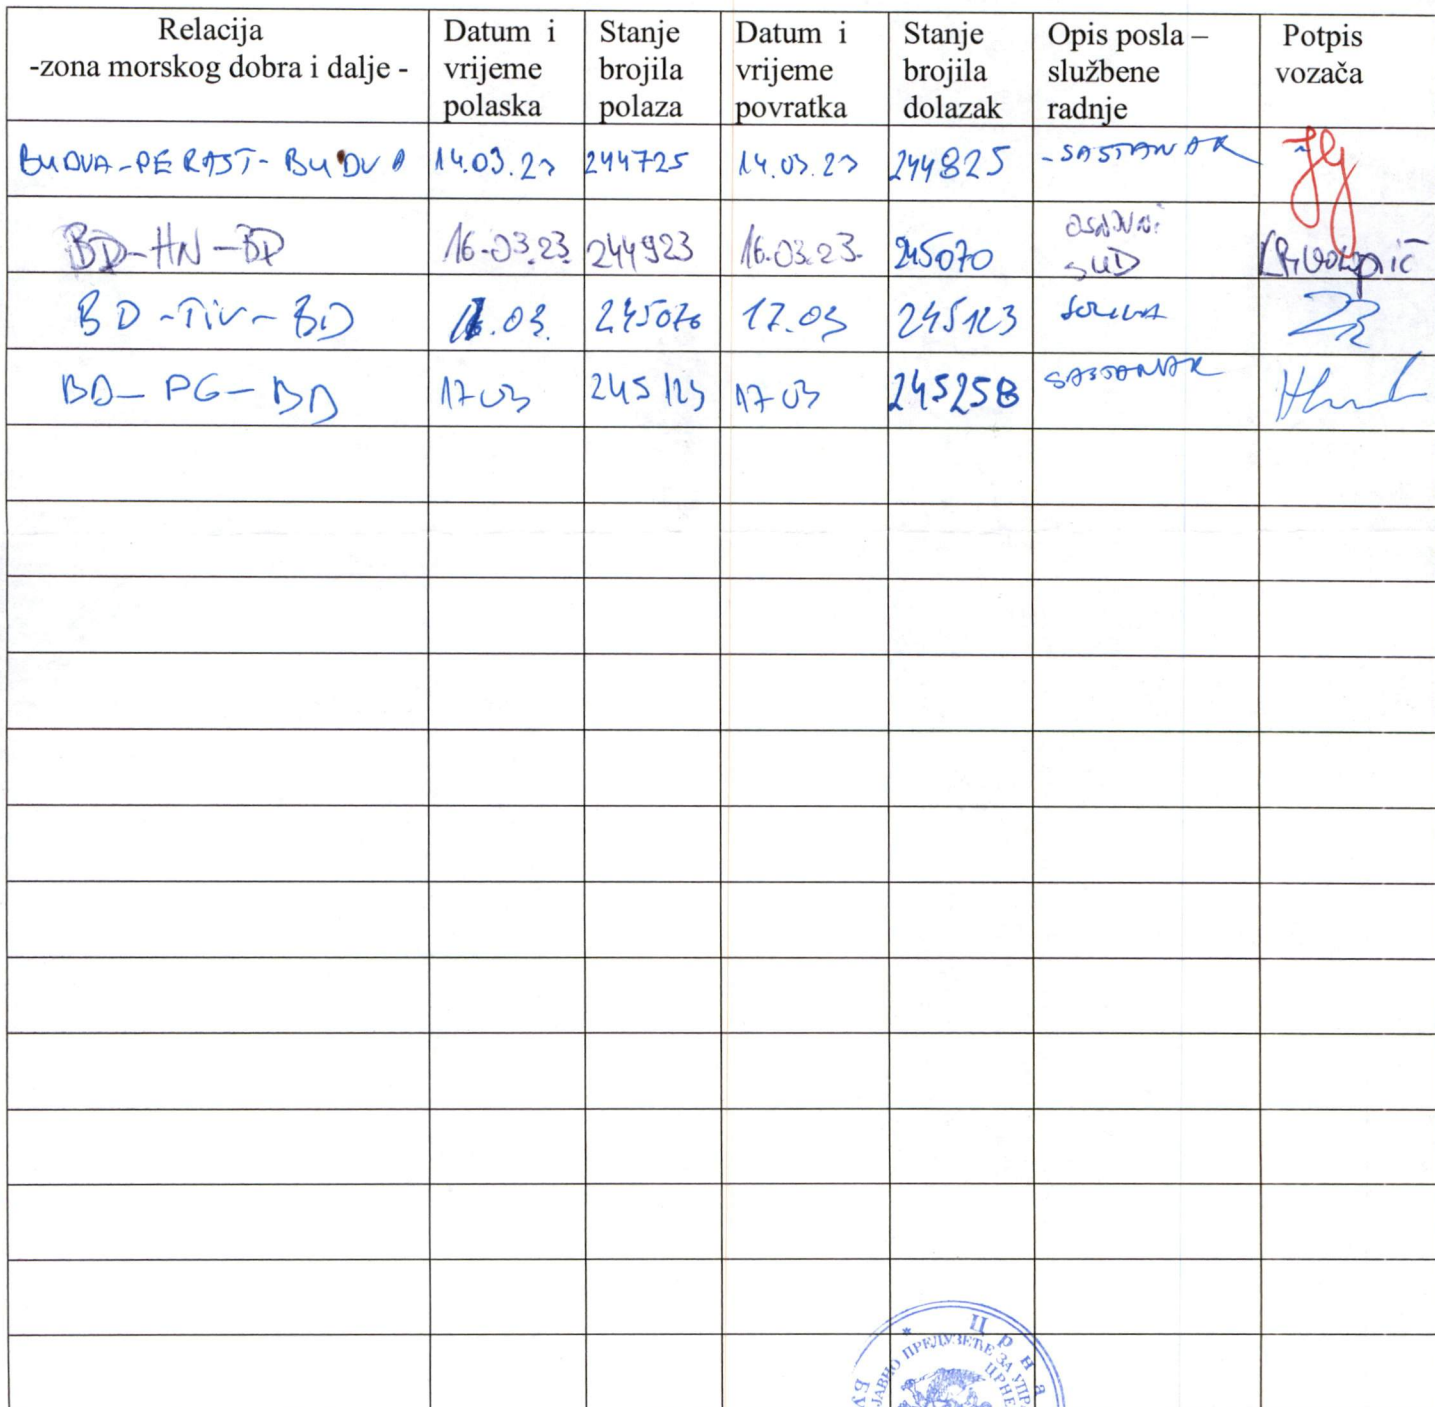 Relacija
-zona morskog dobra i dalje -
Datum i
vrijeme
polaska
Stanje
brojila
polaza
Datum i
vrijeme
povratka
Stanje
brojila
dolazak
Opis posla –
službene
radnje
Potpis
vozača
BUDVA-PERAST-BUDVA 14.03.23 244725 14.03.23 244825 -SASTANAK
BD-HN-BD 16.03.23. 244923 16.03.23. 245070
SUD
BD-TIV-BD .03. 245070 17.03 245123
BD-PG-BD 17 03 245123 17 03 245258 SASTANAK
Црна
ЈАВНО ПРЕДУЗЕЋЕ ЗА